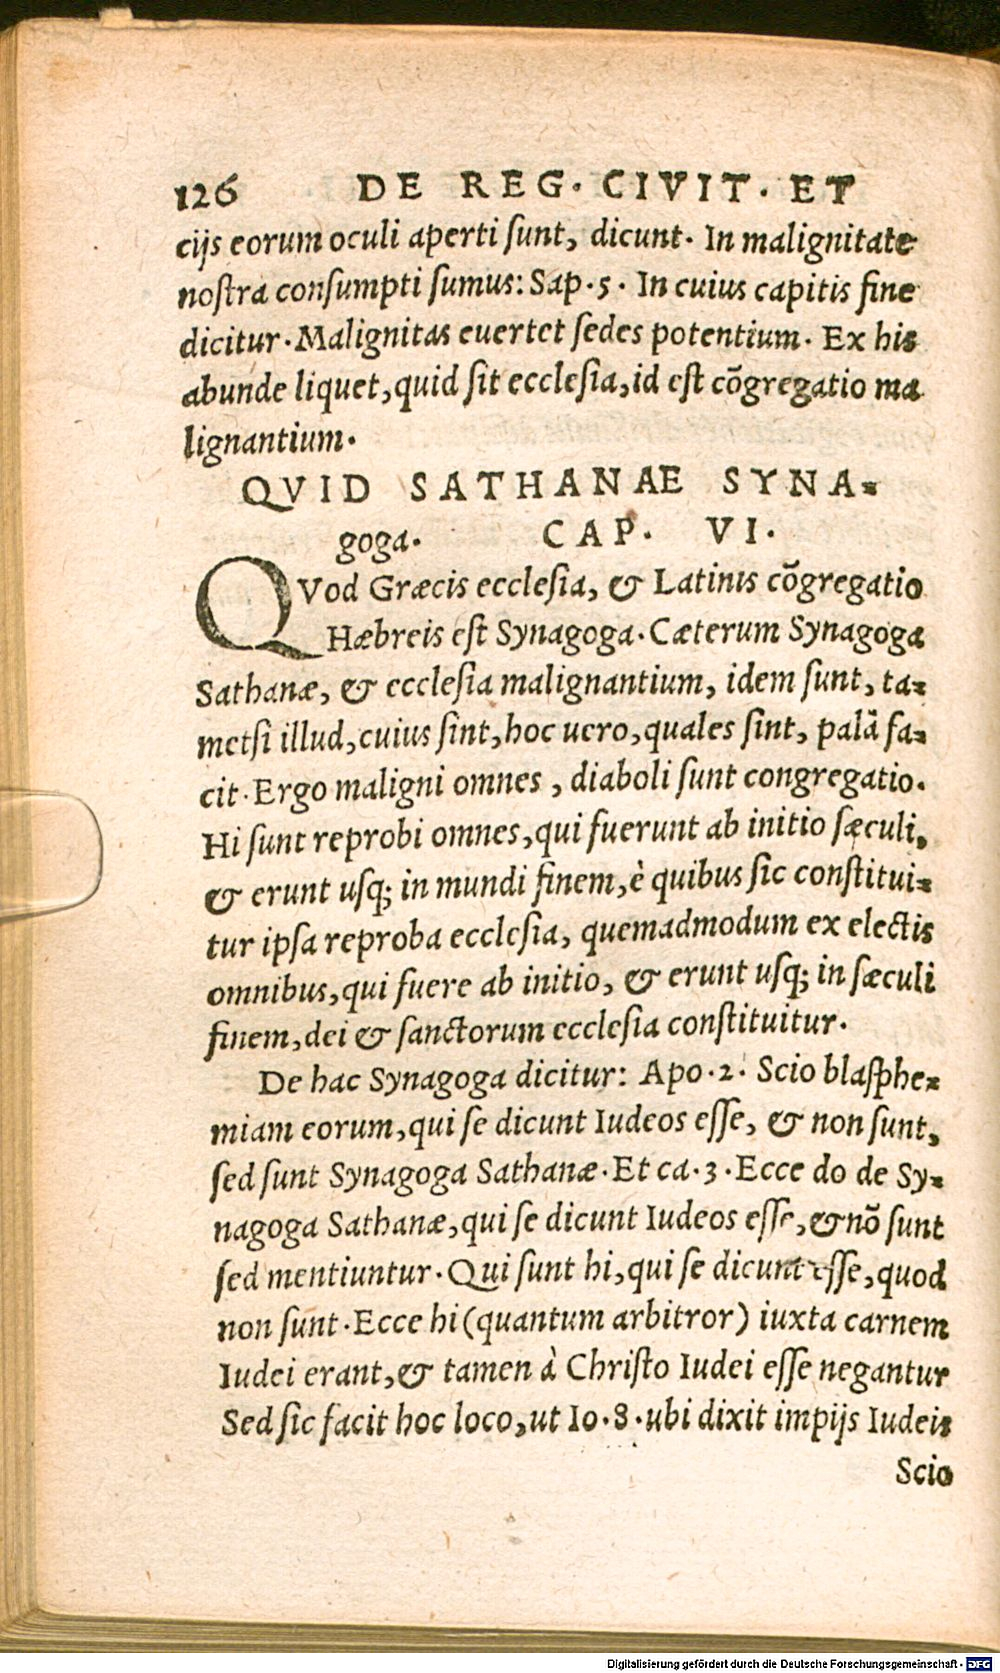 126 DE REG. CIVIT. ET
cijs eorum oculi aperti sunt, dicunt. In malignitate
nostra consumpti sumus: Sap. 5. In cuius capitis fine
dicitur. Malignitas euertet sedes potentium. Ex his
abunde liquet, quid sit ecclesia, id est cõgregatio ma
lignantium.
QVID SATHANAE SYNA=
goga. CAP. VI.
QVod Græcis ecclesia, & Latinis cõgregatio
Hæbreis est Synagoga. Cæterum Synagoga
Sathanæ, & ecclesia malignantium, idem sunt, ta=
metsi illud, cuius sint, hoc uero, quales sint, palã fa=
cit. Ergo maligni omnes, diaboli sunt congregatio.
Hi sunt reprobi omnes, qui fuerunt ab initio sæculi,
& erunt usq; in mundi finem, è quibus sic constitui=
tur ipsa reproba ecclesia, quemadmodum ex electis
omnibus, qui fuere ab initio, & erunt usq; in sæculi
finem, dei & sanctorum ecclesia constituitur.
De hac Synagoga dicitur: Apo. 2. Scio blasphe=
miam eorum, qui se dicunt Iudeos esse, & non sunt,
sed sunt Synagoga Sathanæ. Et ca. 3. Ecce do de Sy=
nagoga Sathanæ, qui se dicunt Iudeos esse, & nõ sunt
sed mentiuntur. Qui sunt hi, qui se dicunt esse, quod
non sunt. Ecce hi (quantum arbitror) iuxta carnem
Iudei erant, & tamen à Christo Iudei esse negantur
Sed sic facit hoc loco, ut Io. 8. ubi dixit impijs Iudeis
Scio
Digitalisierung gefördert durch die Deutsche Forschungsgemeinschaft - DFG